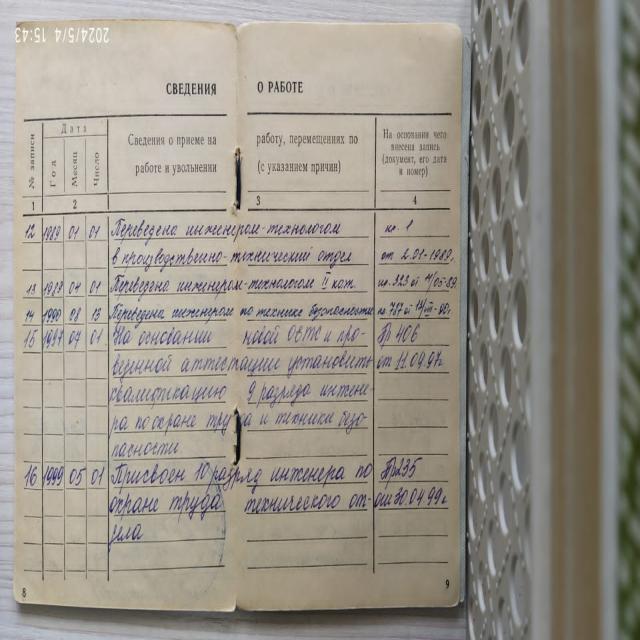 2024/5/4 15:43
СВЕДЕНИЯ О РАБОТЕ
№ записи
Дата
Год
Месяц
Число
Сведения о приеме на работу, перемещениях по
работе и увольнении (с указанием причин)
На основании чего
внесена запись
(документ, его дата
и номер)
1 2 3 4
12 1989 01 01 Переведена инженером-технологом пр. 1
в производственно-технический отдел от 2.01-1989г.
13 1989 04 01 Переведена инженером-технологом II кат. пр. 323 от
14 1990 08 13 Переведена инженером по технике безопасности пр 757 от
15 1997 07 01 На основании новой ОСТК и про- Пр 406
веденной аттестации установить от 11.09.97г.
квалификацию 9 разряда инжене-
ра по охране труда и техники безо-
пасности
16 1999 05 01 Присвоен 10 разряд инженера по Пр235
охране труда технического от- от 30 04 99г.
дела
8 9